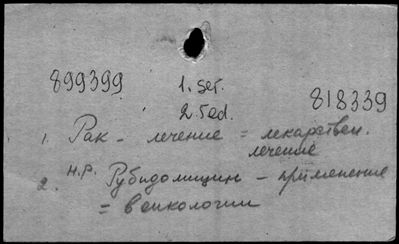 899399
1. ser.
2. red.
818339
1. Рак - лечение = лекарствен.
лечение
2. н.р. Рубидомицин - применение
= в онкологии